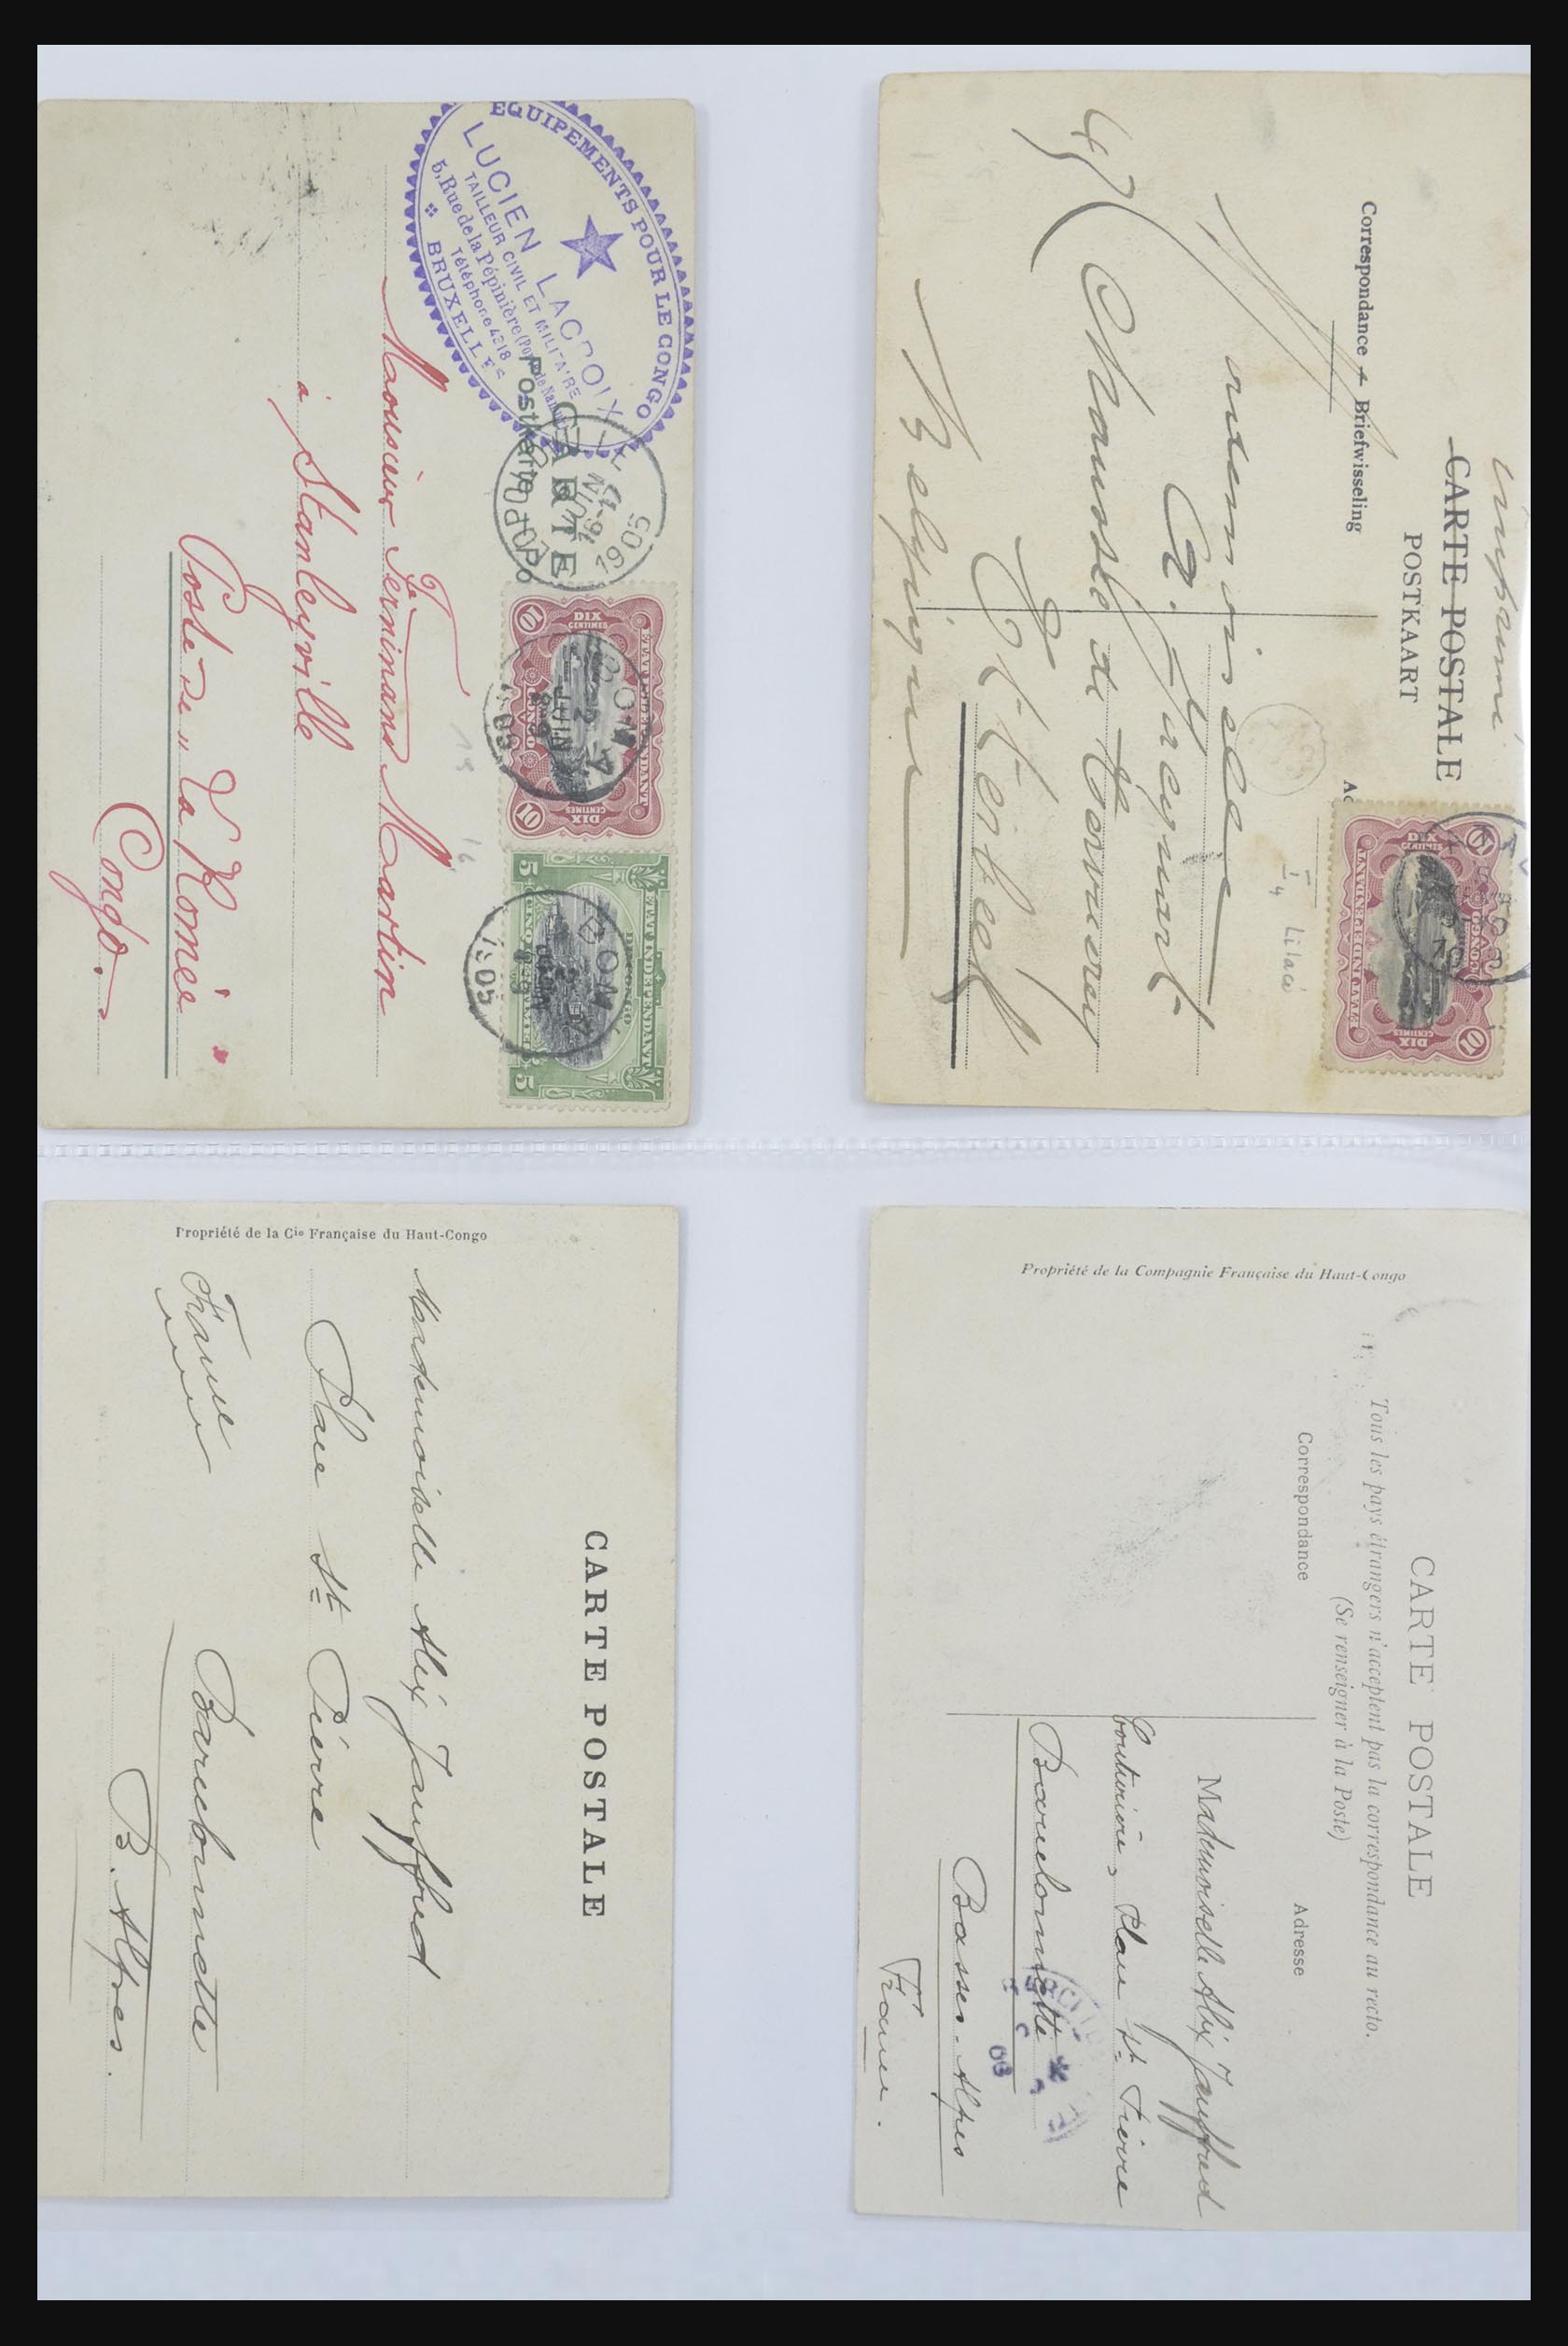 EQUIPEMENTS POUR LE CONGO
LUCIEN LACROIX
TAILLEUR CIVIL ET MILITAIRE
5, Rue de la Pépinière (Porte de Namur)
Téléphone 4318
BRUXELLES
CARTE
Postkarte
LÉOPOLDVILLE
JUIN
1905
ÉTAT INDÉPENDANT
DU CONGO
DIX
CENTIMES
10
BOMA
JUIN
1905
ÉTAT INDÉPENDANT
DU CONGO
5
CINQ CENTIMES
5
BOMA
1905
Monsieur Ferninand Martin
à Stanleyville
Poste de "La Romée
Congo.
15
16
imprimé
CARTE POSTALE
POSTKAART
Correspondance
Briefwisseling
CONGO
DIX
CENTIMES
10
Lilacé
Mademoiselle
Jacquart
Chaussée de
Etterbeek
Belgique
Propriété de la Cie Française du Haut-Congo
CARTE POSTALE
Mademoiselle Alix Jauffred
Place St Pierre
Barcelonnette
B. Alpes.
France
Propriété de la Compagnie Française du Haut-Congo
CARTE POSTALE
Tous les pays étrangers n'acceptent pas la correspondance au recto.
(Se renseigner à la Poste)
Correspondance
Adresse
Mademoiselle Alix Jauffred
Couturière, Place St Pierre
Barcelonnette
Basses-Alpes
France.
09